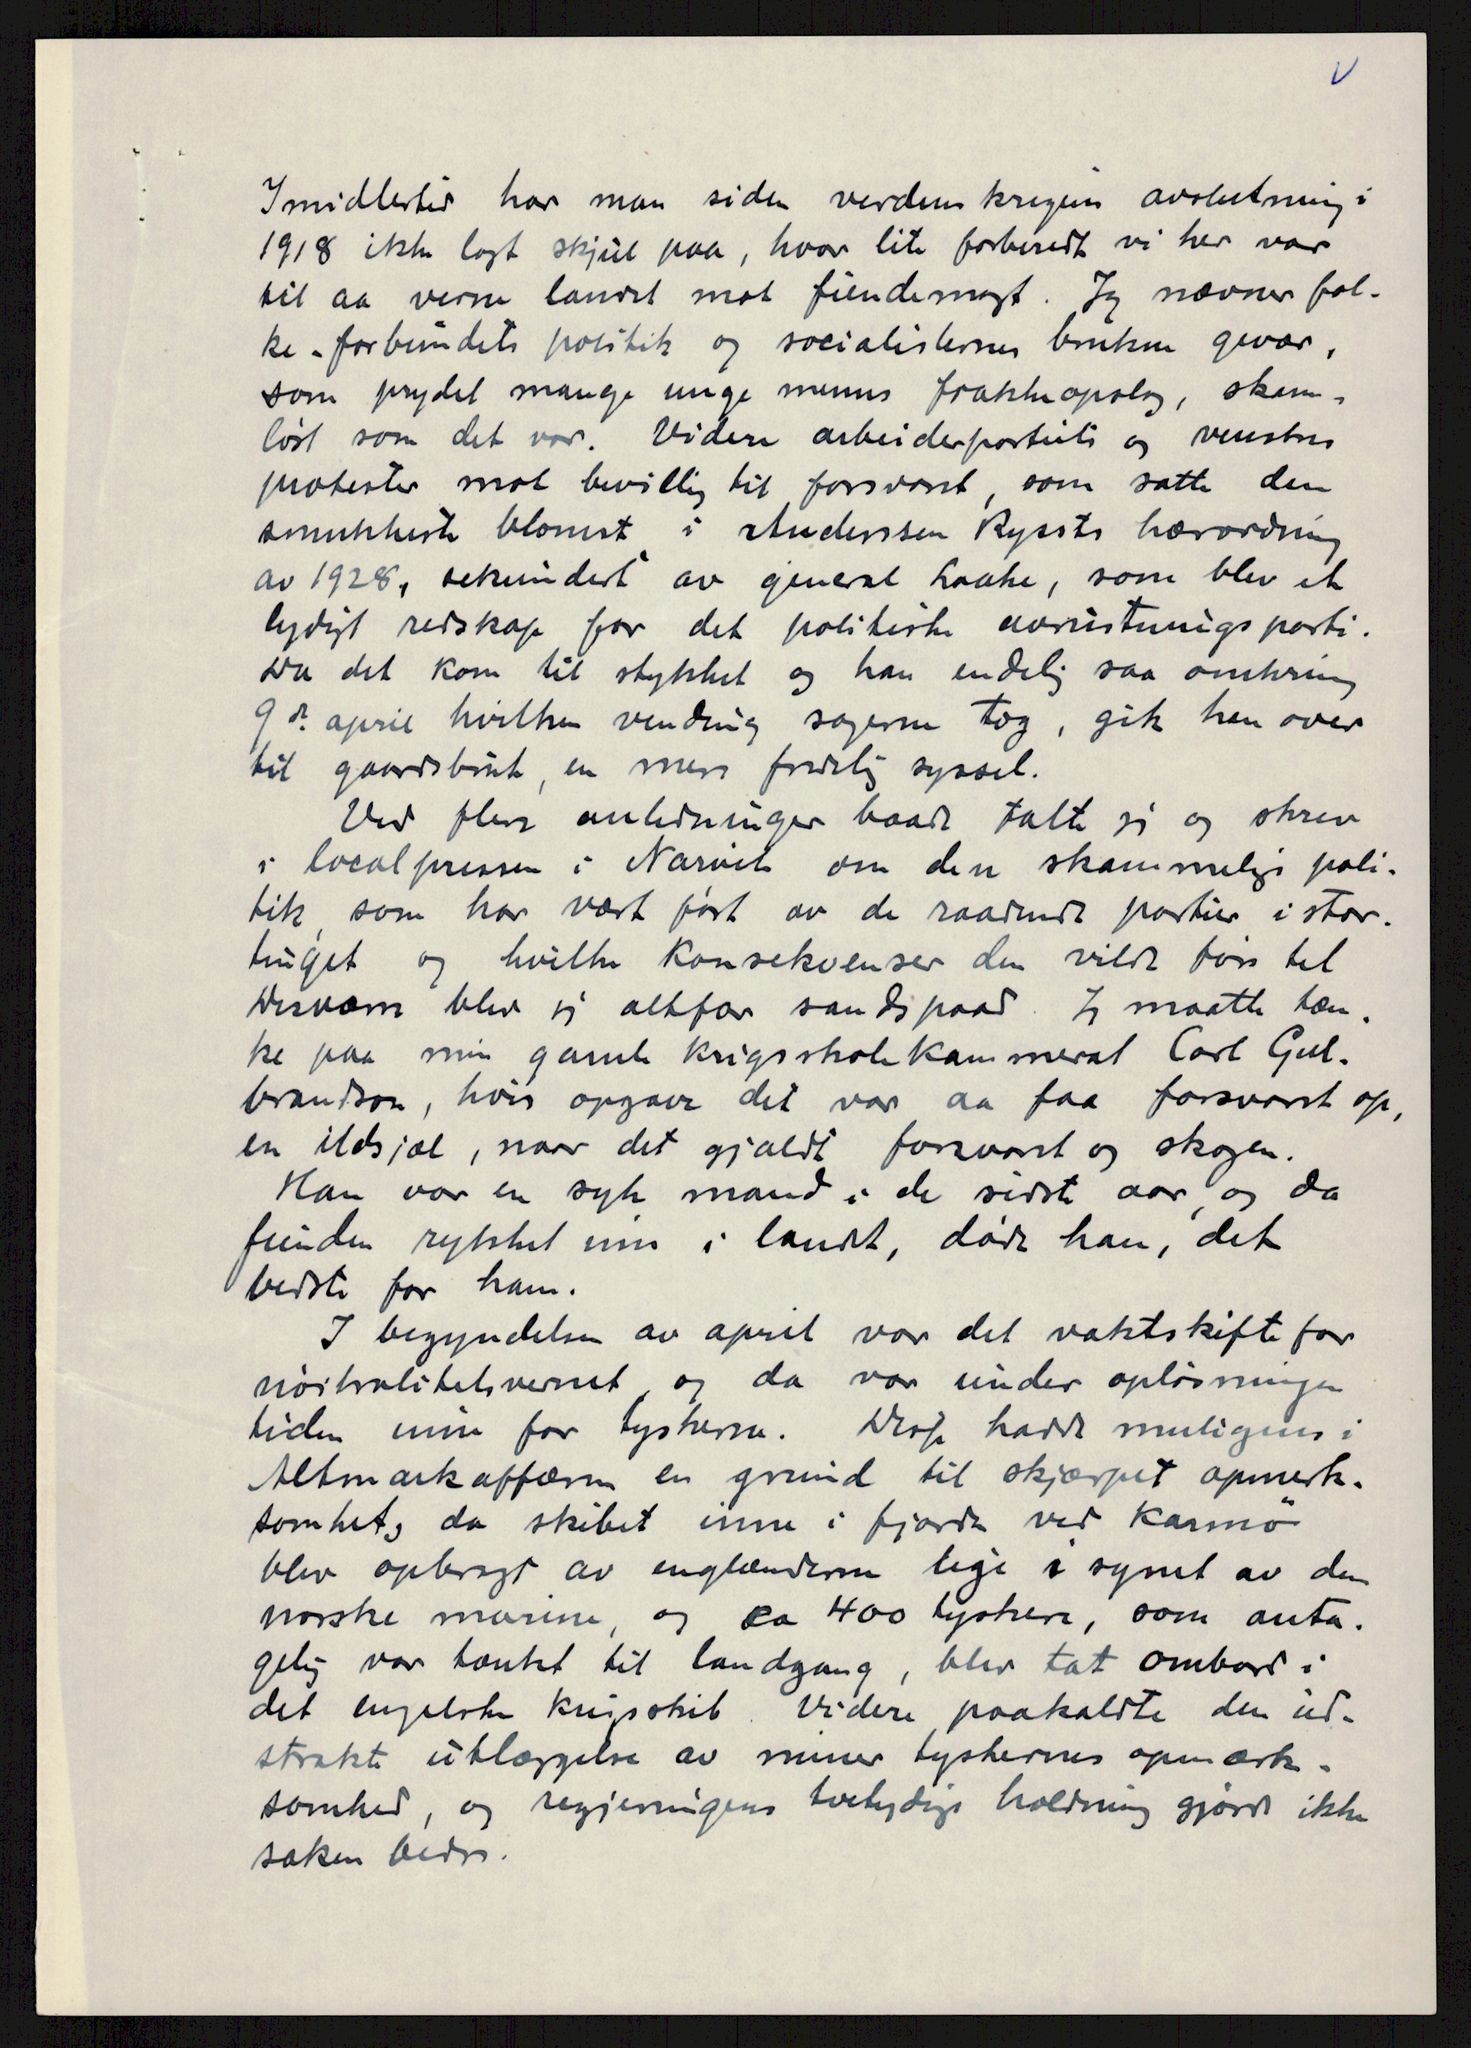 V
Imidlertid har man siden verdenskrigens avslutning i
1918 ikke lagt skjul paa, hvor lite forberedt vi her var
til aa verne landet mot fiendemagt. Jeg nævner fol-
ke-forbundets politik og socialisternes brukne gevær,
som prydet mange unge menns frakkeopslag, skam-
løst som det var. Videre arbeiderpartiets og venstres
protester mot bevillig til forsvaret, som satte den
smukkeste blomst i Anderssen Ryssts hærordning
av 1928, sekundert av general Laake, som blev et
lydigt redskap for det politiske avrustningsparti.
Da det kom til stykket og han endelig saa omkring
9de april hvilken vending sagerne tog, gik han over
til gaardsbruk, en mere fredelig syssel.
Ved flere anledninger baade talte jeg og skrev
i localpressen i Narvik om den skammelige poli-
tik, som har vært ført av de raadende partier i stor-
tinget og hvilke konsekvenser den vilde føre til
Desværre blev jeg altfor sandspaad. Jeg maatte tæn-
ke paa min gamle krigsskolekammerat Carl Gul-
brandson, hvis opgave det var aa faa forsvaret op,
en ildsjæl, naar det gjaldt forsvaret og skogen.
Han var en syk mand i de sidste aar, og da
fienden rykket inn i landet, døde han, det
bedste for ham.
I begyndelsen av april var det vaktskifte for
nöitralitetsvernet, og da var under opløsningen
tiden inne for tyskerne. Disse hadde muligens i
Altmarkaffæren en grund til skjærpet opmerk-
somhet, da skibet inne i fjorden ved Karmö
blev opbragt av englænderne lige i synet av den
norske marine, og ca 400 tyskere, som anta-
gelig var tænkt til landgang, blev tat ombord i
det engelske krigsskib. Videre paakaldte den ud-
strakte utlæggelse av miner tyskernes opmærk-
somhed, og regjeringens tvetydige holdning gjorde ikke
saken bedre.